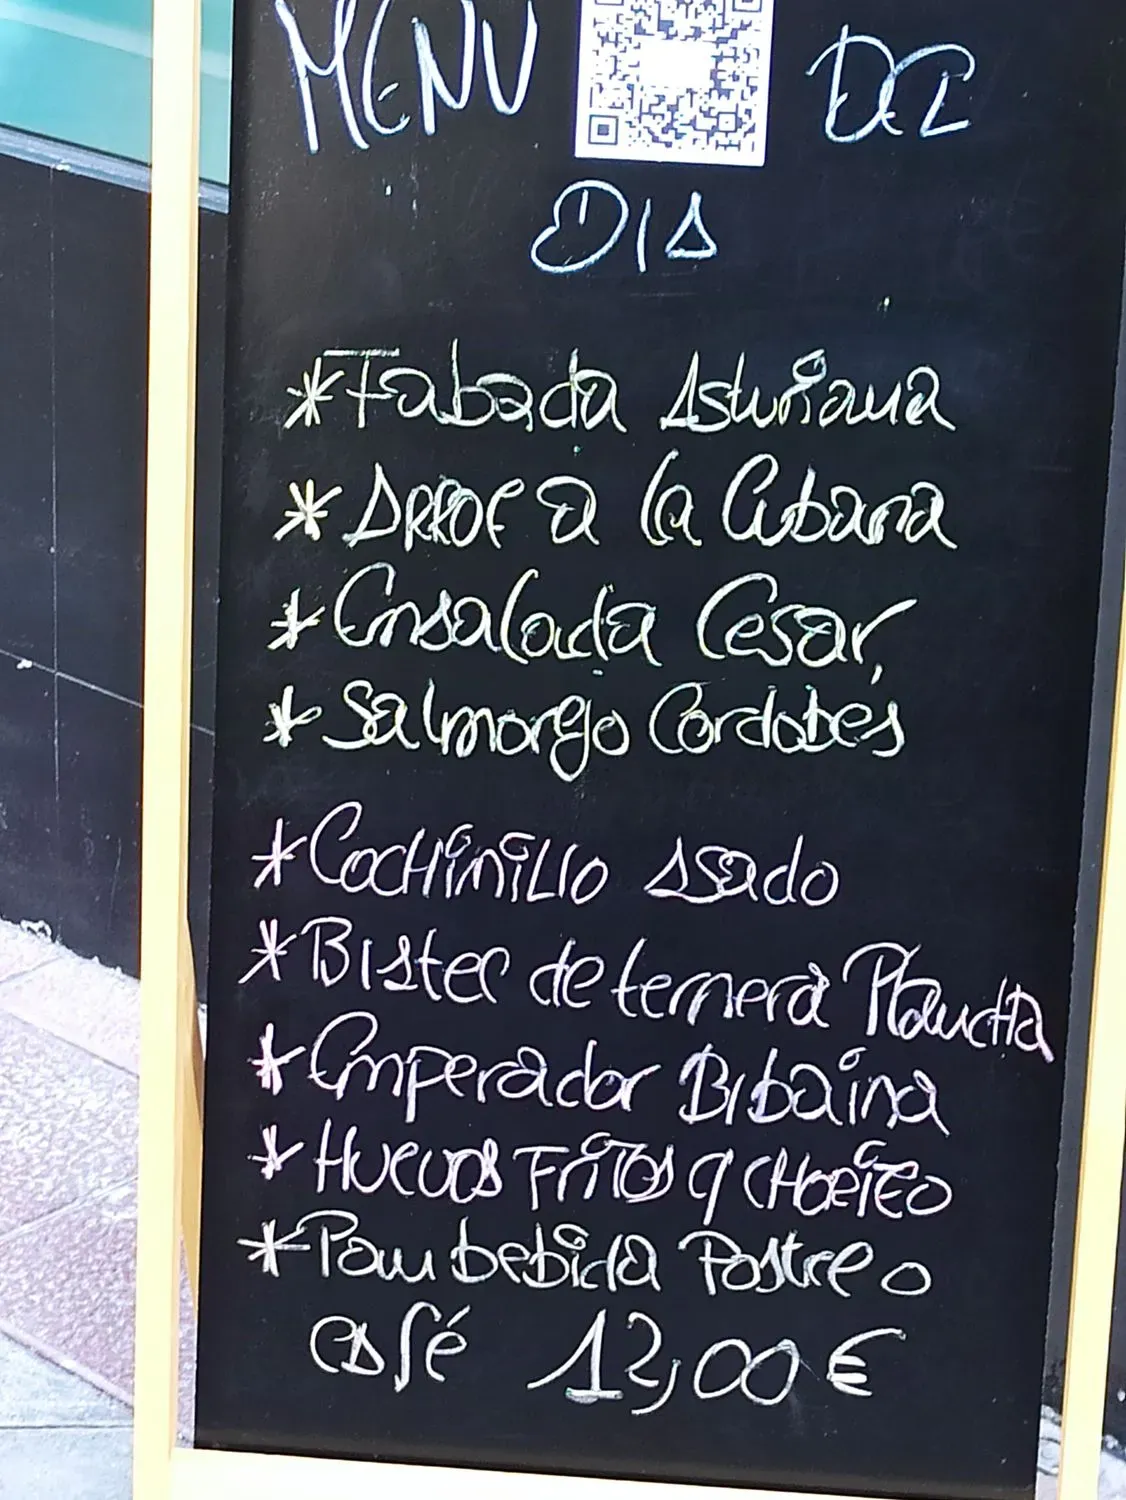 MENU DEL
DIA
*Fabada Asturiana
*ARROZ a la Cubana
*Ensalada Cesar,
*Salmorejo Cordobés
*COCHiNiLLO Asado
*Bistec de ternera PlancHA
*Emperador Bibaina
*HUEVOS FRiTOS y CHORiZO
*Pan bebida Postre o
café 12,00 €